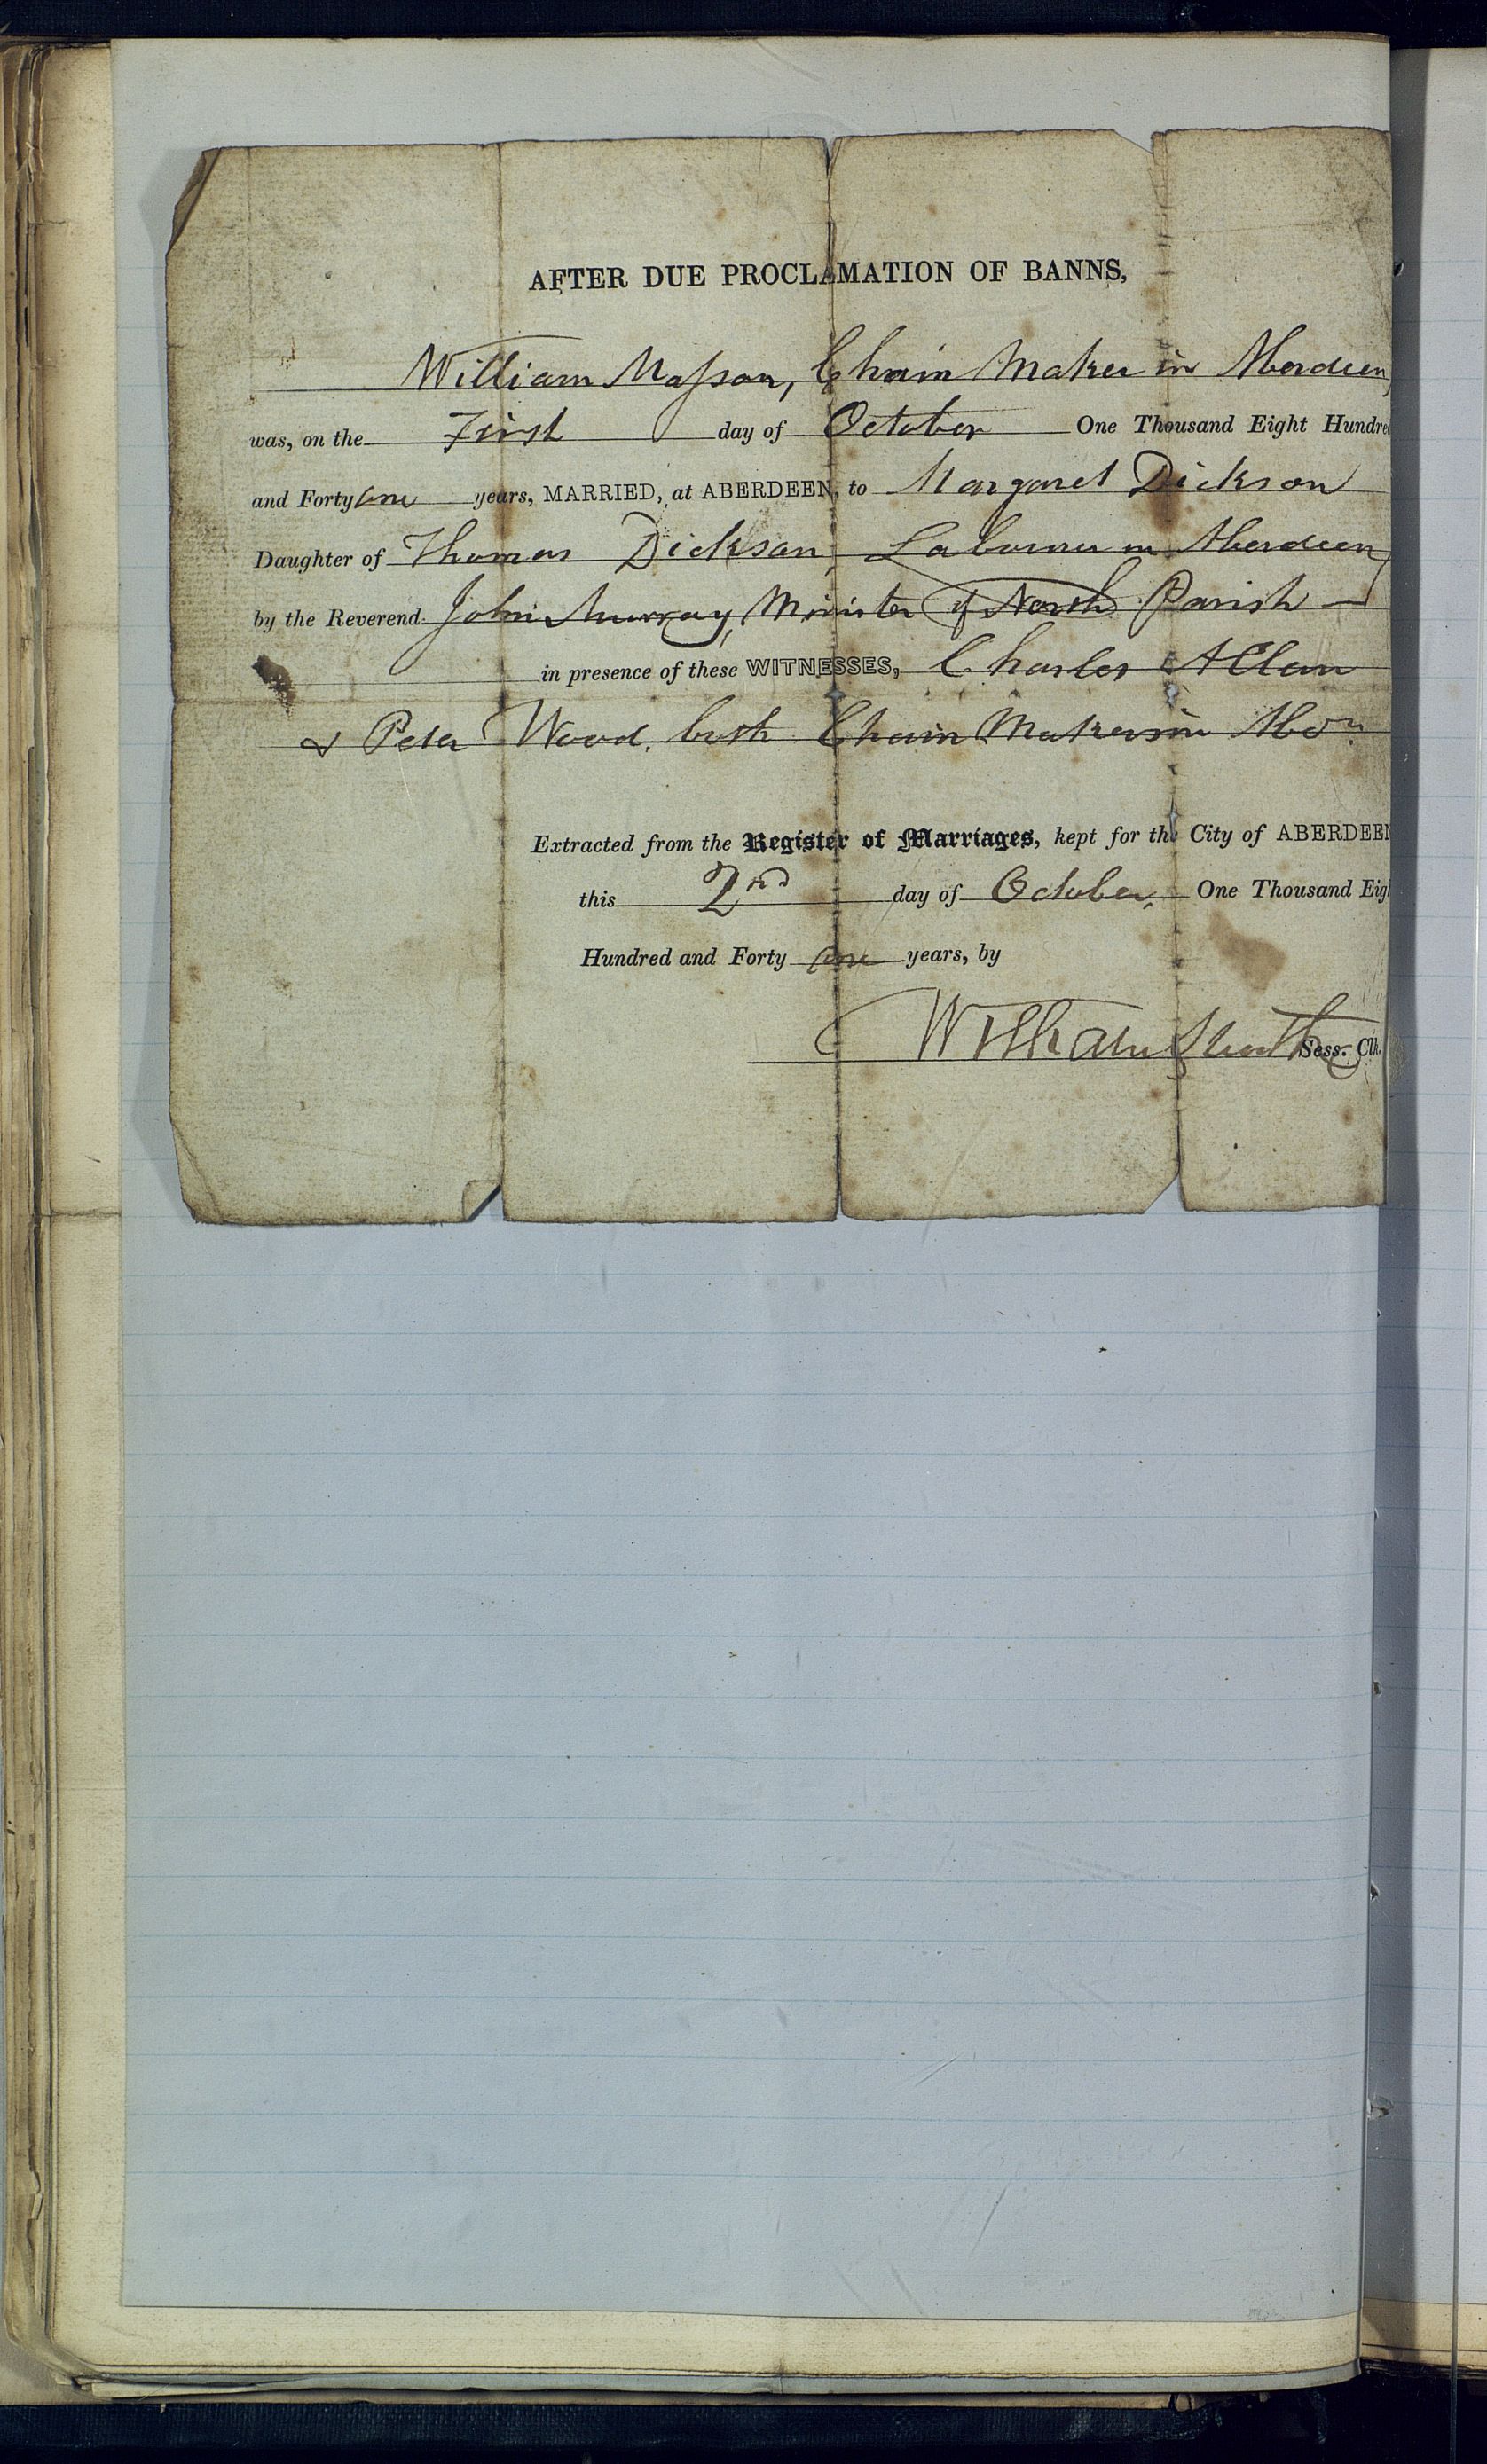 AFTER DUE PROCLAMATION OF BANNS,
William Maſson, Chain Maker in Aberdeen,
was, on the First day of October One Thousand Eight Hundred
and Forty one years, MARRIED, at ABERDEEN, to Margaret Dickson
Daughter of Thomas Dickson, Labourer in Aberdeen,
by the Reverend John Murray, Minister of North Parish —
in presence of these WITNESSES, Charles Allan
& Peter Wood, both Chain Makers in Abdn
Extracted from the Register of Marriages, kept for the City of ABERDEEN
this 2nd day of October, One Thousand Eig
Hundred and Forty one years, by
William Sess. Clk.